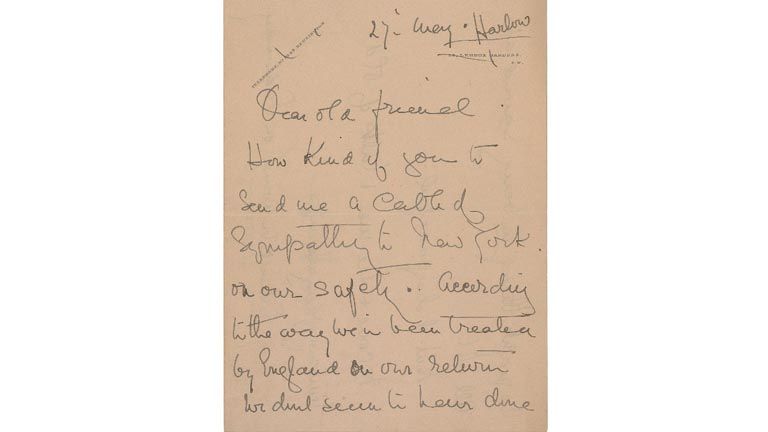 27' May. Harlow
TELEPHONE, KENSINGTON
LENNOX GARDENS,
S.W.
Dear old friend
How kind of you to
send me a cable of
Sympathy to New York.
on our safety.. According
to the way we've been treated
by England on our return
we didn't seem to have done